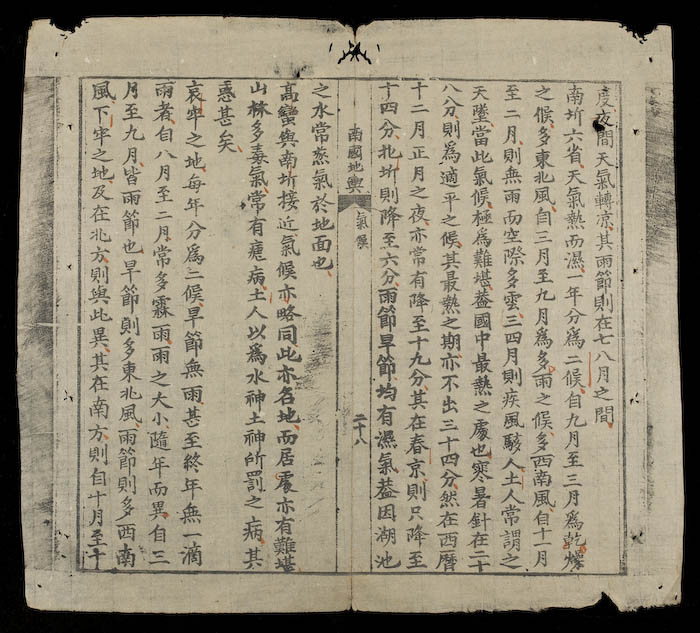 度夜間天氣轉凉其雨節則在七八月之間
南圻六省天氣熱而濕一年分爲二候自九月至三月爲乾燥
之候多東北風自三月至九月爲多雨之候多西南風自十一月
至二月則無雨而空際多雲三四月則疾風駭人土人常謂之
天墜當此氣候極爲難堪葢國中最熱之處也寒暑針在二十
八分則爲適平之候其最熱之期亦不出三十四分然在西曆
十二月正月之夜亦常有降至十九分其在春京則只降至
十四分北圻則降至六分雨節旱節均有濕氣葢因湖池
南國地輿
氣候
二十八
之水常蒸氣於地面也
高蠻與南圻接近氣候亦略同此亦名地而居處亦有難堪
山林多毒氣常有瘧病土人以爲水神土神所罰之病其
惑甚矣
哀牢之地每年分爲二候旱節無雨甚至終年無一滴
雨者自八月至二月常多霖雨雨之大小隨年而異自三
月至九月皆雨節也旱節則多東北風雨節則多西南
風下牢之地及在北方則與此異其在南方則自十月至十